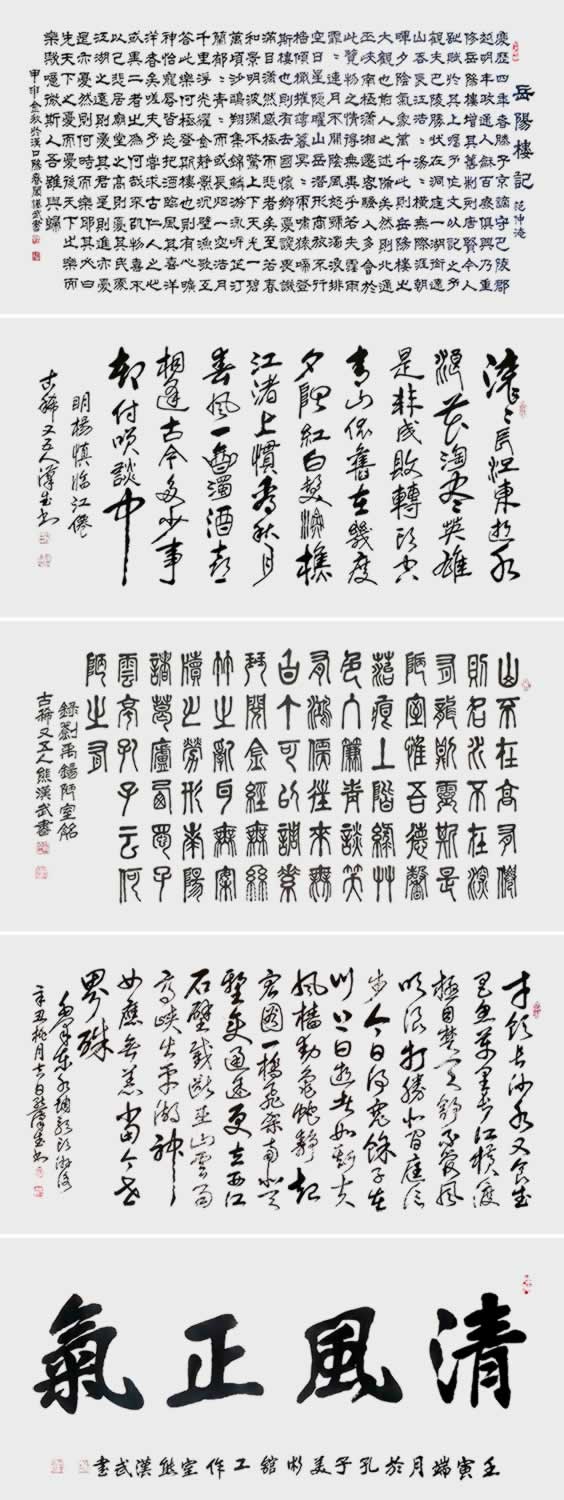 岳陽樓記 范仲淹
慶歷四年春滕子京謫守巴陵郡
越明年政通人和百廢俱興乃重
修岳陽樓增其舊制刻唐賢今人
詩賦於其上囑予作文以記之予
觀夫巴陵勝狀在洞庭一湖銜遠
山吞長江浩浩湯湯橫無際涯朝
暉夕陰氣象萬千此則岳陽樓之
大觀也前人之述備矣然則北通
巫峽南極瀟湘遷客騷人多會於
此覽物之情得無異乎若夫霪雨
霏霏連月不開陰風怒號濁浪排
空日星隱曜山岳潛形商旅不行
檣傾楫摧薄暮冥冥虎嘯猿啼登
斯樓也則有去國懷鄉憂讒畏譏
滿目蕭然感極而悲者矣至若春
和景明波瀾不驚上下天光一碧
萬頃沙鷗翔集錦鱗游泳岸芷汀
蘭郁郁青青而或長煙一空皓月
千里浮光躍金靜影沉璧漁歌互
答此樂何極登斯樓也則有心曠
神怡寵辱皆忘把酒臨風其喜洋
洋者矣嗟夫予嘗求古仁人之心
或異二者之為何哉不以物喜不
以己悲居廟堂之高則憂其民處
江湖之遠則憂其君是進亦憂退
亦憂然則何時而樂耶其必曰
先天下之憂而憂後天下之樂而
樂歟噫微斯人吾誰與歸
甲申金秋於漢口陽春閣漢武書
滾滾長江東逝水
浪花淘盡英雄
是非成敗轉頭空
青山依舊在幾度
夕陽紅白髮漁樵
江渚上慣看秋月
春風一壺濁酒喜
相逢古今多少事
都付笑談中
明楊慎臨江僊
古稀又五人漢武書
山不在高有僊
則名水不在深
有龍則靈斯是
陋室惟吾德馨
苔痕上階綠艸
色入簾青談笑
有鴻儒往來無
白丁可以調素
琴閱金經無絲
竹之亂耳無案
牘之勞形南陽
諸葛廬西蜀子
雲亭孔子云何
陋之有
錄劉禹錫陋室銘
古稀又五人熊漢武書
才飲長沙水又食武
昌魚萬里長江橫渡
極目楚天舒不管風
吹浪打勝似閒庭信
步今日得寬餘子在
川上曰逝者如斯夫
風檣動龜蛇靜起
宏圖一橋飛架南北天
塹變通途更立西江
石壁截斷巫山雲雨
高峽出平湖神
女應無恙當今世
界殊
毛澤東水調歌頭游泳
辛丑桃月吉日漢武書
清風正氣
壬寅端月於孔子美術館工作室熊漢武書